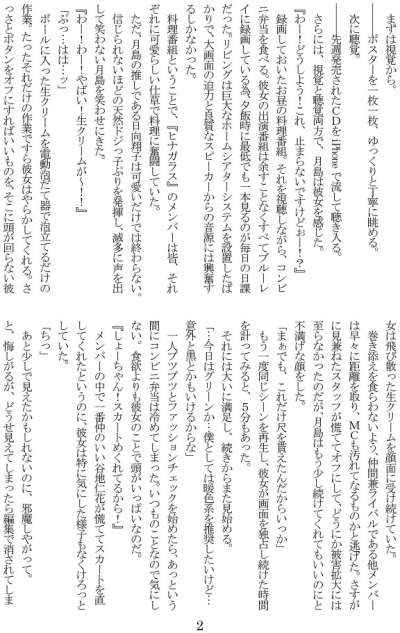 まずは視覚から。
――ポスターを一枚一枚、ゆっくりと丁寧に眺める。
次に聴覚。
――先週発売されたＣＤをiPhoneで流して聴き入る。
さらには、視覚と聴覚両方で、月島は彼女を感じた。
『わー！どうしよう！これ、止まらないですけどぉー！？』
録画しておいたお昼の料理番組。それを視聴しながら、コンビ
ニ弁当を食べる。彼女の出演番組は余すことなくすべてブルーレ
イに録画している為、夕飯時に最低でも一本見るのが毎日の日課
だった。リビングは巨大なホームシアターシステムを設置したば
かりで、大画面の迫力と良質なスピーカーからの音源には興奮す
るしかなかった。
料理番組ということで、『ヒナガラス』のメンバーは皆、それ
ぞれに可愛らしい仕草で料理に奮闘していた。
ただ、月島の推しである日向翔子は可愛いだけでは終わらない。
信じられないほどの天然ドジっ子ぶりを発揮し、滅多に声を出
して笑わない月島を笑わせにきた。
『わー！わー！やばい！生クリームが～！！』
「ぷっ…はは…ッ」
ボールに入った生クリームを電動泡だて器で泡立てるだけの
作業。たったそれだけの作業ですら彼女はやらかしてくれる。さ
っさとボタンをオフにすればいいものを、そこに頭が回らない彼
女は飛び散った生クリームを顔面に受け続けていた。
巻き添えを食らわないよう、仲間兼ライバルである他メンバー
は早々に距離を取り、ＭＣも汚れてなるものかと逃げた。さすが
に見兼ねたスタッフが慌ててオフにして、どうにか被害拡大には
至らなかったのだが、月島はもう少し続けてくれてもいいのにと
不満げな顔をした。
「まぁでも、これだけ尺を貰えたんだからいっか」
もう一度同じシーンを再生し、彼女が画面を独占し続けた時間
を計ってみると、５分もあった。
それには大いに満足し、続きからまた見始める。
「…今日はグリーンか…僕としては暖色系を推奨したいけど…
意外と黒とかもいけるからな」
一人ブツブツとファッションチェックを始めたら、あっという
間にコンビニ弁当は冷めてしまった。いつものことなので気にし
ない。食欲よりも彼女のことで頭がいっぱいなのだ。
『しょーちゃん！スカートめくれてるから！』
メンバーの中で一番仲のいい谷地仁花が慌ててスカートを直
してくれたというのに、彼女は特に気にした様子もなくけろっと
していた。
「ちっ」
あと少しで見えたかもしれないのに、邪魔しやがって。
と、悔しがるが、どうせ見えてしまったら編集で消されてしま
2